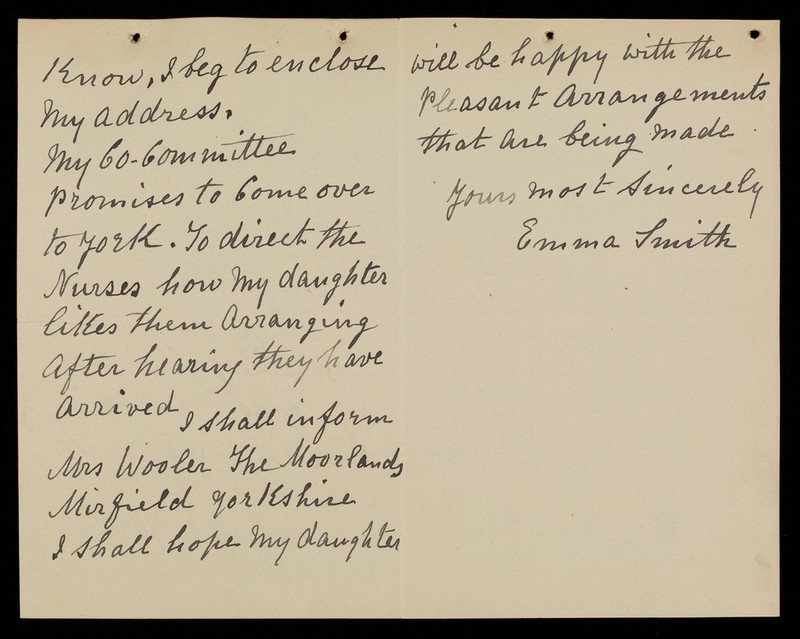 Know, I beg to enclose
My address.
My Co-Committee
promises to Come over
to York. To direct the
Nurses how My daughter
likes them Arranging
After hearing they have
Arrived
I shall inform
Mrs Wooler The Moorlands
Mirfield Yorkshire
I shall hope My daughter
will be happy with the
Pleasant Arrangements
that Are being made
Yours most Sincerely
Emma Smith